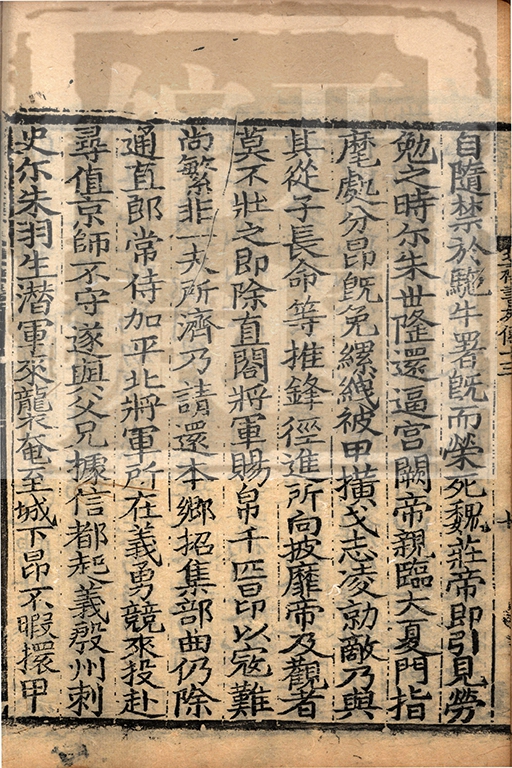 自隨禁於駞牛署旣而榮死魏莊帝即引見勞
勉之時尒朱世隆還逼宮闕帝親臨大夏門指
麾處分昂旣免縲絏被甲撗戈志凌勍敵乃與
其從子長命等推鋒徑進所向披靡帝及觀者
莫不壯之即除直閤將軍賜帛千匹昂以寇難
尚繁非一夫所濟乃請還本鄉招集部曲仍除
通直郎常侍加平北將軍所在義勇競來投赴
尋值京師不守遂與父兄據信都起義殷州刺
史尒朱羽生潜軍來襲奄至城下昂不暇擐甲